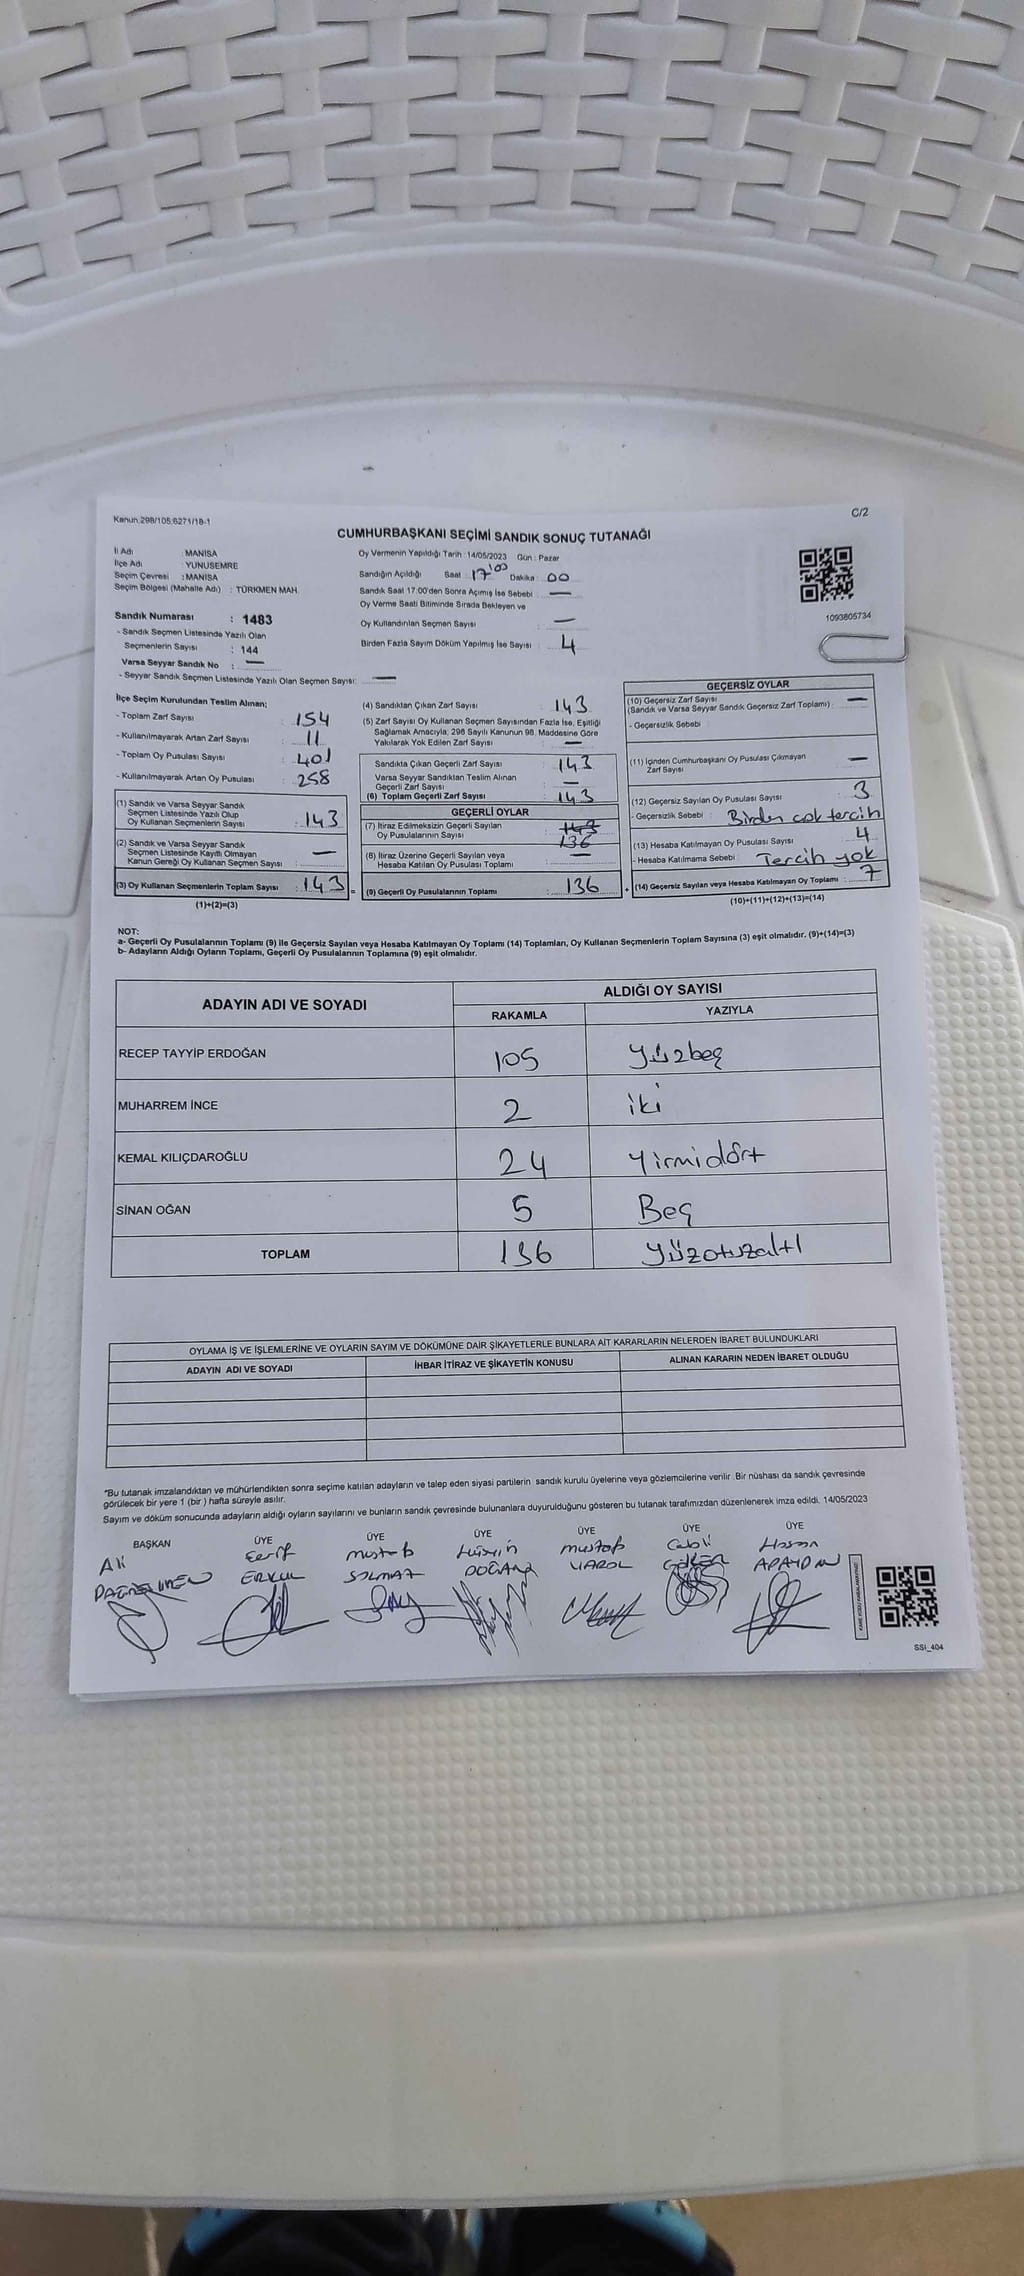 Kanun:298/105,6271/18-1
C/2
CUMHURBAŞKANI SEÇİMİ SANDIK SONUÇ TUTANAĞI
İl Adı : MANİSA
İlçe Adı : YUNUSEMRE
Seçim Çevresi : MANİSA
Seçim Bölgesi (Mahalle Adı) : TÜRKMEN MAH.
Oy Vermenin Yapıldığı Tarih :14/05/2023 Gün : Pazar
Sandığın Açıldığı Saat 17:00 Dakika : 00
Sandık Saat 17:00'den Sonra Açımış İse Sebebi : —
Oy Verme Saati Bitiminde Sırada Bekleyen ve
Oy Kullandırılan Seçmen Sayısı : —
Birden Fazla Sayım Döküm Yapılmış İse Sayısı : 4
1093805734
Sandık Numarası : 1483
- Sandık Seçmen Listesinde Yazılı Olan
Seçmenlerin Sayısı : 144
Varsa Seyyar Sandık No : —
- Seyyar Sandık Seçmen Listesinde Yazılı Olan Seçmen Sayısı: —
İlçe Seçim Kurulundan Teslim Alınan;
- Toplam Zarf Sayısı : 154
- Kullanılmayarak Artan Zarf Sayısı : 11
- Toplam Oy Pusulası Sayısı : 401
- Kullanılmayarak Artan Oy Pusulası : 258
(1) Sandık ve Varsa Seyyar Sandık
Seçmen Listesinde Yazılı Olup
Oy Kullanan Seçmenlerin Sayısı : 143
(2) Sandık ve Varsa Seyyar Sandık
Seçmen Listesinde Kayıtlı Olmayan
Kanun Gereği Oy Kullanan Seçmen Sayısı : —
(3) Oy Kullanan Seçmenlerin Toplam Sayısı : 143 =
(1)+(2)=(3)
(4) Sandıktan Çıkan Zarf Sayısı : 143
(5) Zarf Sayısı Oy Kullanan Seçmen Sayısından Fazla İse, Eşitliği
Sağlamak Amacıyla, 298 Sayılı Kanunun 98. Maddesine Göre
Yakılarak Yok Edilen Zarf Sayısı : —
Sandıkta Çıkan Geçerli Zarf Sayısı : 143
Varsa Seyyar Sandıktan Teslim Alınan
Geçerli Zarf Sayısı : —
(6) Toplam Geçerli Zarf Sayısı : 143
GEÇERLİ OYLAR
(7) İtiraz Edilmeksizin Geçerli Sayılan
Oy Pusulalarının Sayısı : 143
136
(8) İtiraz Üzerine Geçerli Sayılan veya
Hesaba Katılan Oy Pusulası Toplamı : —
(9) Geçerli Oy Pusulalarının Toplamı : 136 +
GEÇERSİZ OYLAR
(10) Geçersiz Zarf Sayısı
(Sandık ve Varsa Seyyar Sandık Geçersiz Zarf Toplamı) : —
- Geçersizlik Sebebi :
(11) İçinden Cumhurbaşkanı Oy Pusulası Çıkmayan
Zarf Sayısı : —
(12) Geçersiz Sayılan Oy Pusulası Sayısı : 3
- Geçersizlik Sebebi : Birden çok tercih
(13) Hesaba Katılmayan Oy Pusulası Sayısı : 4
- Hesaba Katılmama Sebebi : Tercih yok
(14) Geçersiz Sayılan veya Hesaba Katılmayan Oy Toplamı : 7
(10)+(11)+(12)+(13)=(14)
NOT:
a- Geçerli Oy Pusulalarının Toplamı (9) ile Geçersiz Sayılan veya Hesaba Katılmayan Oy Toplamı (14) Toplamları, Oy Kullanan Seçmenlerin Toplam Sayısına (3) eşit olmalıdır. (9)+(14)=(3)
b- Adayların Aldığı Oyların Toplamı, Geçerli Oy Pusulalarının Toplamına (9) eşit olmalıdır.
ADAYIN ADI VE SOYADI
ALDIĞI OY SAYISI
RAKAMLA YAZIYLA
RECEP TAYYİP ERDOĞAN 105 Yüzbeş
MUHARREM İNCE 2 iki
KEMAL KILIÇDAROĞLU 24 Yirmidört
SİNAN OĞAN 5 Beş
TOPLAM 136 Yüzotuzaltı
OYLAMA İŞ VE İŞLEMLERİNE VE OYLARIN SAYIM VE DÖKÜMÜNE DAİR ŞİKAYETLERLE BUNLARA AİT KARARLARIN NELERDEN İBARET BULUNDUKLARI
ADAYIN ADI VE SOYADI İHBAR İTİRAZ VE ŞİKAYETİN KONUSU ALINAN KARARIN NEDEN İBARET OLDUĞU
*Bu tutanak imzalandıktan ve mühürlendikten sonra seçime katılan adayların ve talep eden siyasi partilerin sandık kurulu üyelerine veya gözlemcilerine verilir. Bir nüshası da sandık çevresinde
görülecek bir yere 1 (bir ) hafta süreyle asılır.
Sayım ve döküm sonucunda adayların aldığı oyların sayılarını ve bunların sandık çevresinde bulunanlara duyurulduğunu gösteren bu tutanak tarafımızdan düzenlenerek imza edildi. 14/05/2023
BAŞKAN ÜYE ÜYE ÜYE ÜYE ÜYE ÜYE
Ali Şerif Mustafa Hüseyin Mustafa Hasan
ERKUL SOLMAZ
SSİ_404